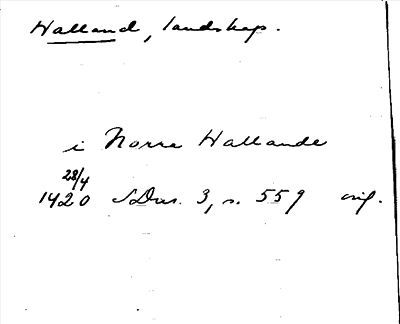 Halland, landskap.
i Norra Hallande
28/4
1420 SDns. 3, s. 559 orig.